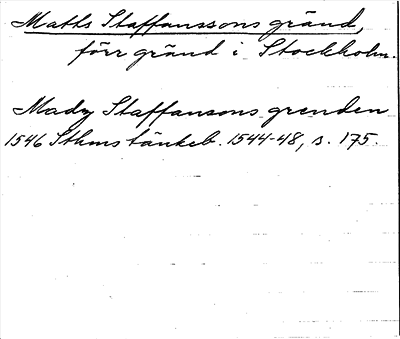 Maths Staffanssons gränd,
förr gränd i Stockholm.
Mady Staffansons grenden
1546 Sthms tänkeb. 1544-48, s. 175.